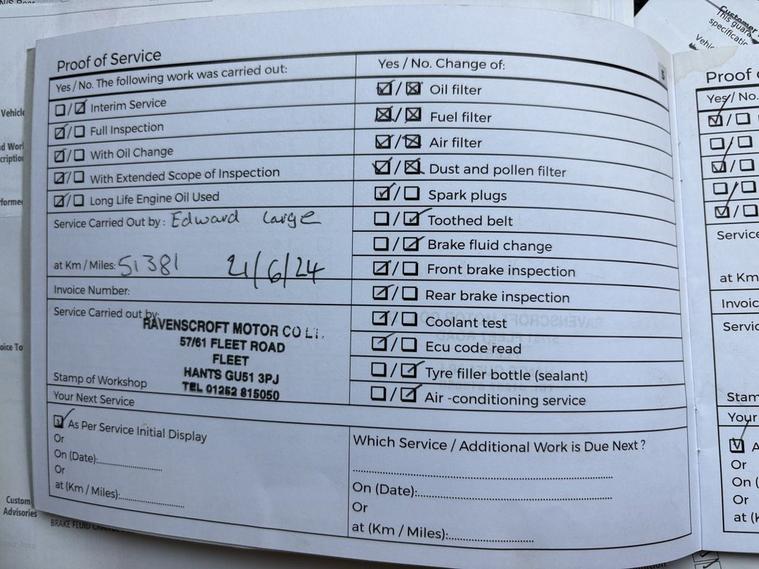 Proof of Service
Yes / No. The following work was carried out:
Interim Service
Full Inspection
With Oil Change
With Extended Scope of Inspection
Long Life Engine Oil Used
Service Carried Out by: Edward Large
at Km / Miles: 51381 21/6/24
Invoice Number:
Service Carried out by:
RAVENSCROFT MOTOR CO LT.
57/61 FLEET ROAD
FLEET
HANTS GU51 3PJ
TEL 01252 815050
Stamp of Workshop
Your Next Service
As Per Service Initial Display
Or
On (Date):
Or
at (Km / Miles):
Yes / No. Change of:
Oil filter
Fuel filter
Air filter
Dust and pollen filter
Spark plugs
Toothed belt
Brake fluid change
Front brake inspection
Rear brake inspection
Coolant test
Ecu code read
Tyre filler bottle (sealant)
Air -conditioning service
Which Service / Additional Work is Due Next?
On (Date):
Or
at (Km / Miles):
Proof o
Yes / No.
Service
at Km
Invoic
Servic
Stam
Your
A
Or
On (
Or
at (k
Vehicle
Custom
Advisories